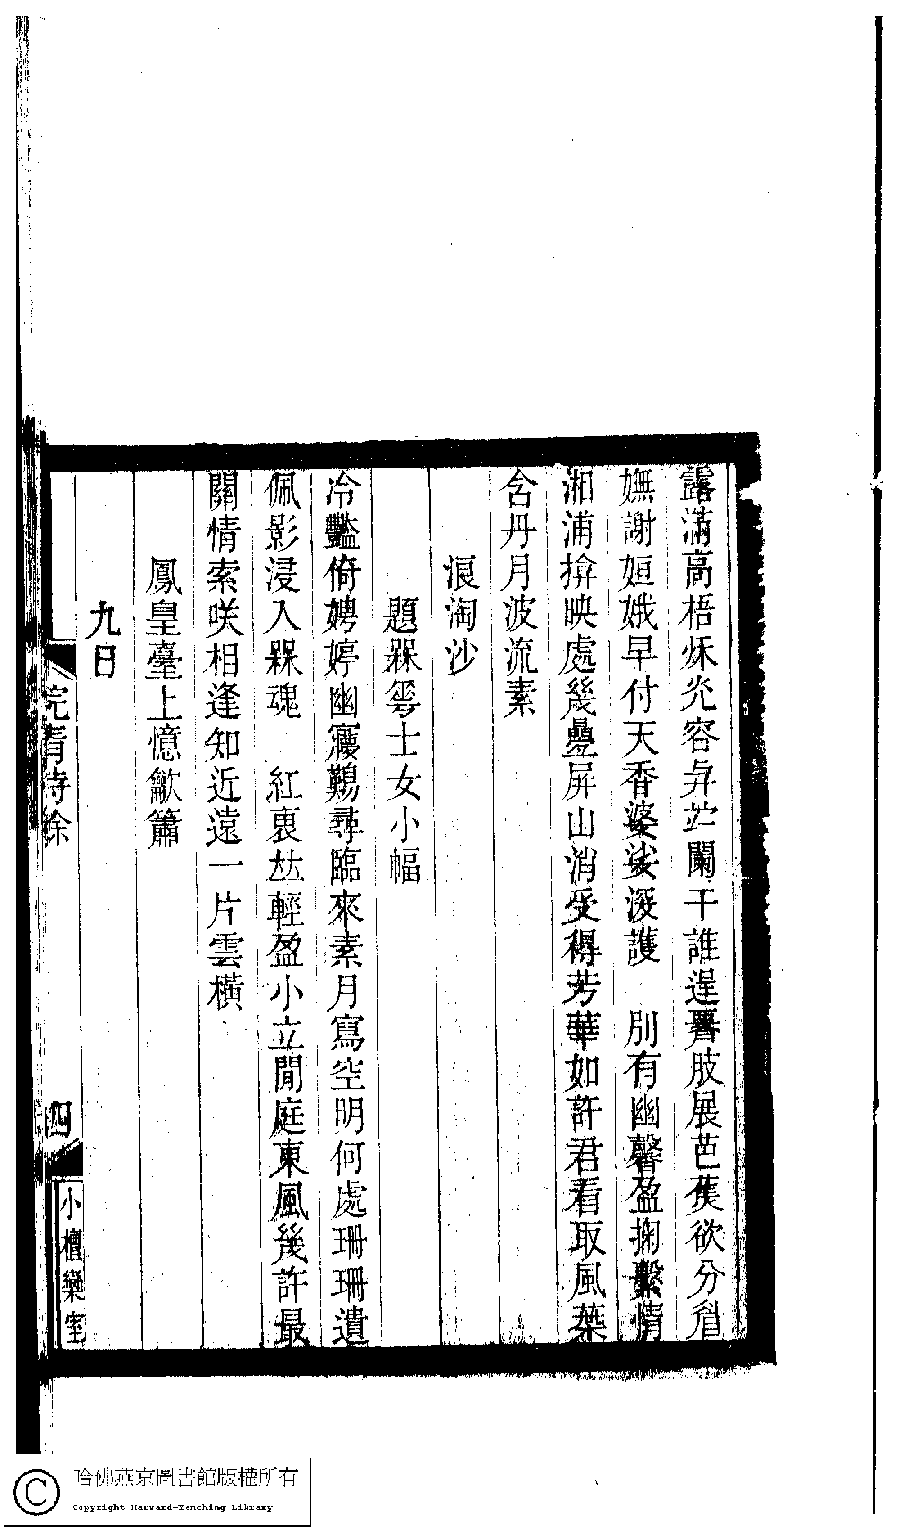 露滿高梧烌炎容與芷闌干誰逞舊肢展芭蕉欲分眉
嫵謝姮娥早付天香婆娑深護　別有幽馨盈掬繫情
湘浦揜映處幾疊屏山消受得芳華如許君看取風蘂
含丹月波流素
浪淘沙
題槑雲士女小幅
冷豔倚娉婷幽寤鷊尋臨來素月寫空明何處珊珊遺
佩影浸入槑魂　紅裏𠫤輕盈小立閒庭東風幾許最
關情索咲相逢知近遠一片雲橫
鳳皇臺上憶龡簫
九日
浣青詩餘
四
小檀欒室
哈佛燕京圖書館版權所有
Copyright Harvard-Yenching Library